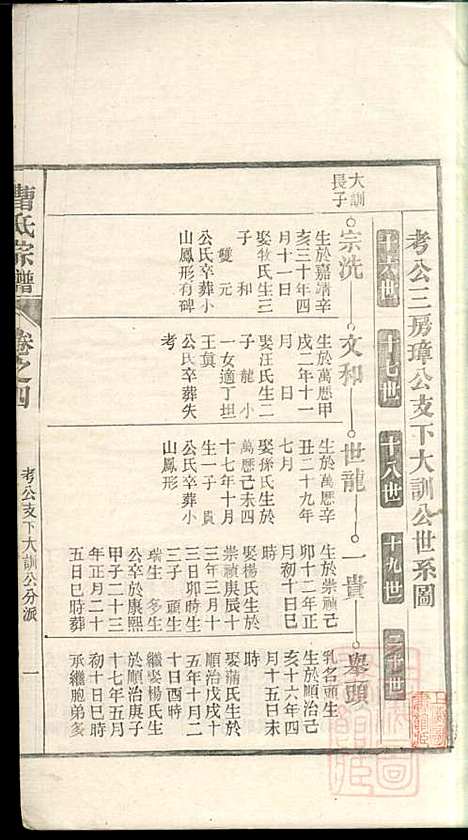 考公三房璋公支下大訓公世系圖
十六世
十七世
十八世
十九世
二十世
大訓
長子
宗洗
文和
世龍
一貴
舉頭
生於嘉靖辛
亥三十年四
月十一日
娶牧氏生三
子 和
雙 元
公氏卒葬小
山鳳形有碑
生於萬曆甲
戌二年十一
月 日
娶汪氏生二
子 龍 小
一女適丁坦
王寘
公氏卒葬失
考
生於萬曆辛
丑二十九年
七月
娶孫氏生於
萬曆己未四
十七年十月
生一子 貴
公氏卒葬小
山鳳形
生於崇禎己
卯十二年正
月初十日巳
時
娶楊氏生於
崇禎庚辰十
三年三月十
三日卯時生
三子 頭生
瑞生 多生
公卒於康熙
甲子二十三
年正月二十
五日巳時葬
乳名頭生
生於順治己
亥十六年四
月十五日未
時
娶蒲氏生於
順治戊戌十
五年十月二
十日酉時
繼娶楊氏生
於順治庚子
十七年五月
初十日巳時
承繼胞弟多
曹氏宗譜
卷之四
考公支下大訓公分派
一